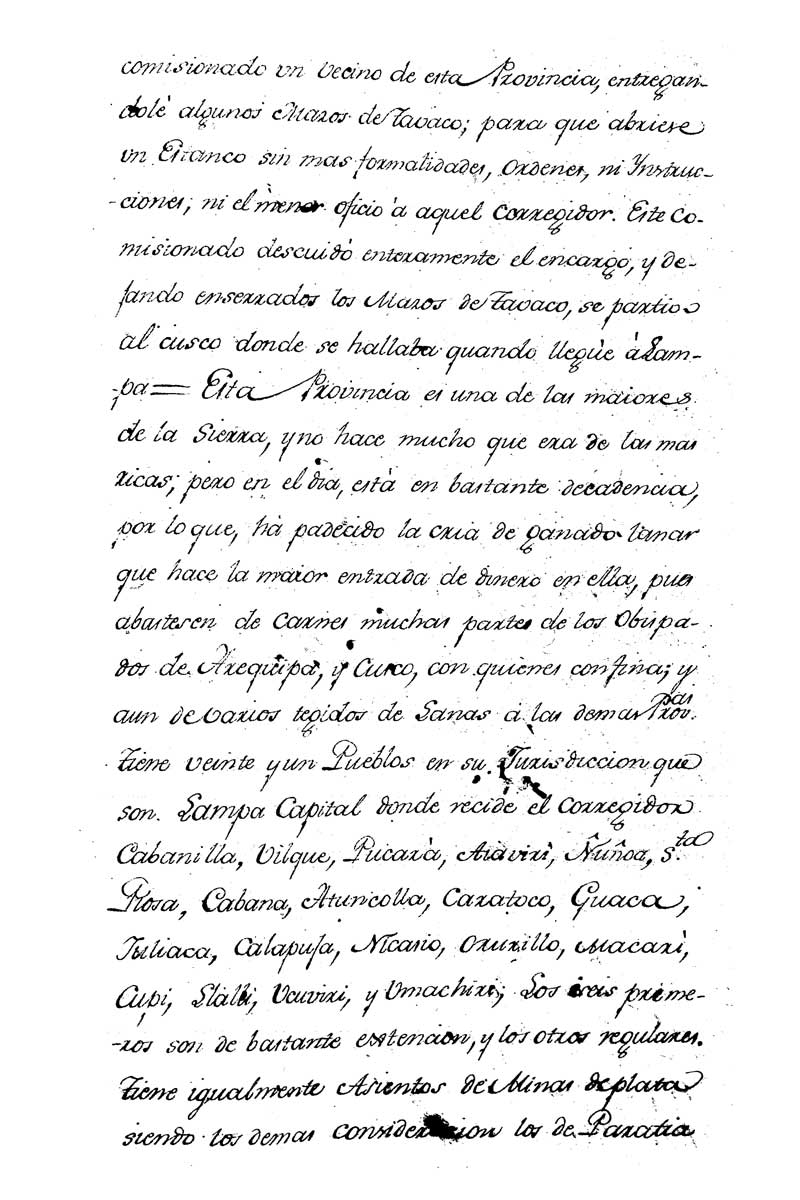 comisionado vn Vecino de esta Provincia, entregan-
dolè algunos Mazos de Tavaco; para que abriese
vn Estanco sin mas formalidades, Ordenes, ni Ynstruc-
-ciones, ni el menor oficio à aquel Corregidor. Este Co-
misionado descuidò enteramente el encargo, y de-
jando enserrados los Mazos de Tavaco, se partio
al Cusco donde se hallaba quando lleguè à Lam-
-pa = Esta Provincia es una de las maiores
de la Sierra, y no hace mucho que era de las mas
ricas; pero en el dia, està en bastante decadencia,
por lo que, hà padecido la cria de ganado lanar
que hace la maior entrada de dinero en ella, pues
abastesen de Carnes muchas partes de los Obispa-
dos de Arequipa, y Cusco, con quienes confina; y
aun de varios tegidos de Lanas à las demas Prov.cias
tiene veinte y un Pueblos en su Jurisdiccion que
son. Lampa Capital donde recide el Corregidor
Cabanilla, Vilque, Pucarà, Asavirì, Ñuñoa, S.ta
Rosa, Cabana, Atuncolla, Caracoto, Guaca,
Juliaca, Calapuja, Nicasio, Orurillo, Macarì,
Cupi, Llalli, Vcuviri, y Vmachiri; Los seis prime-
-ros son de bastante extencion, y los otros regulares.
Tiene igualmente Asientos de Minas de plata
siendo los demas consideracion los de Paratia